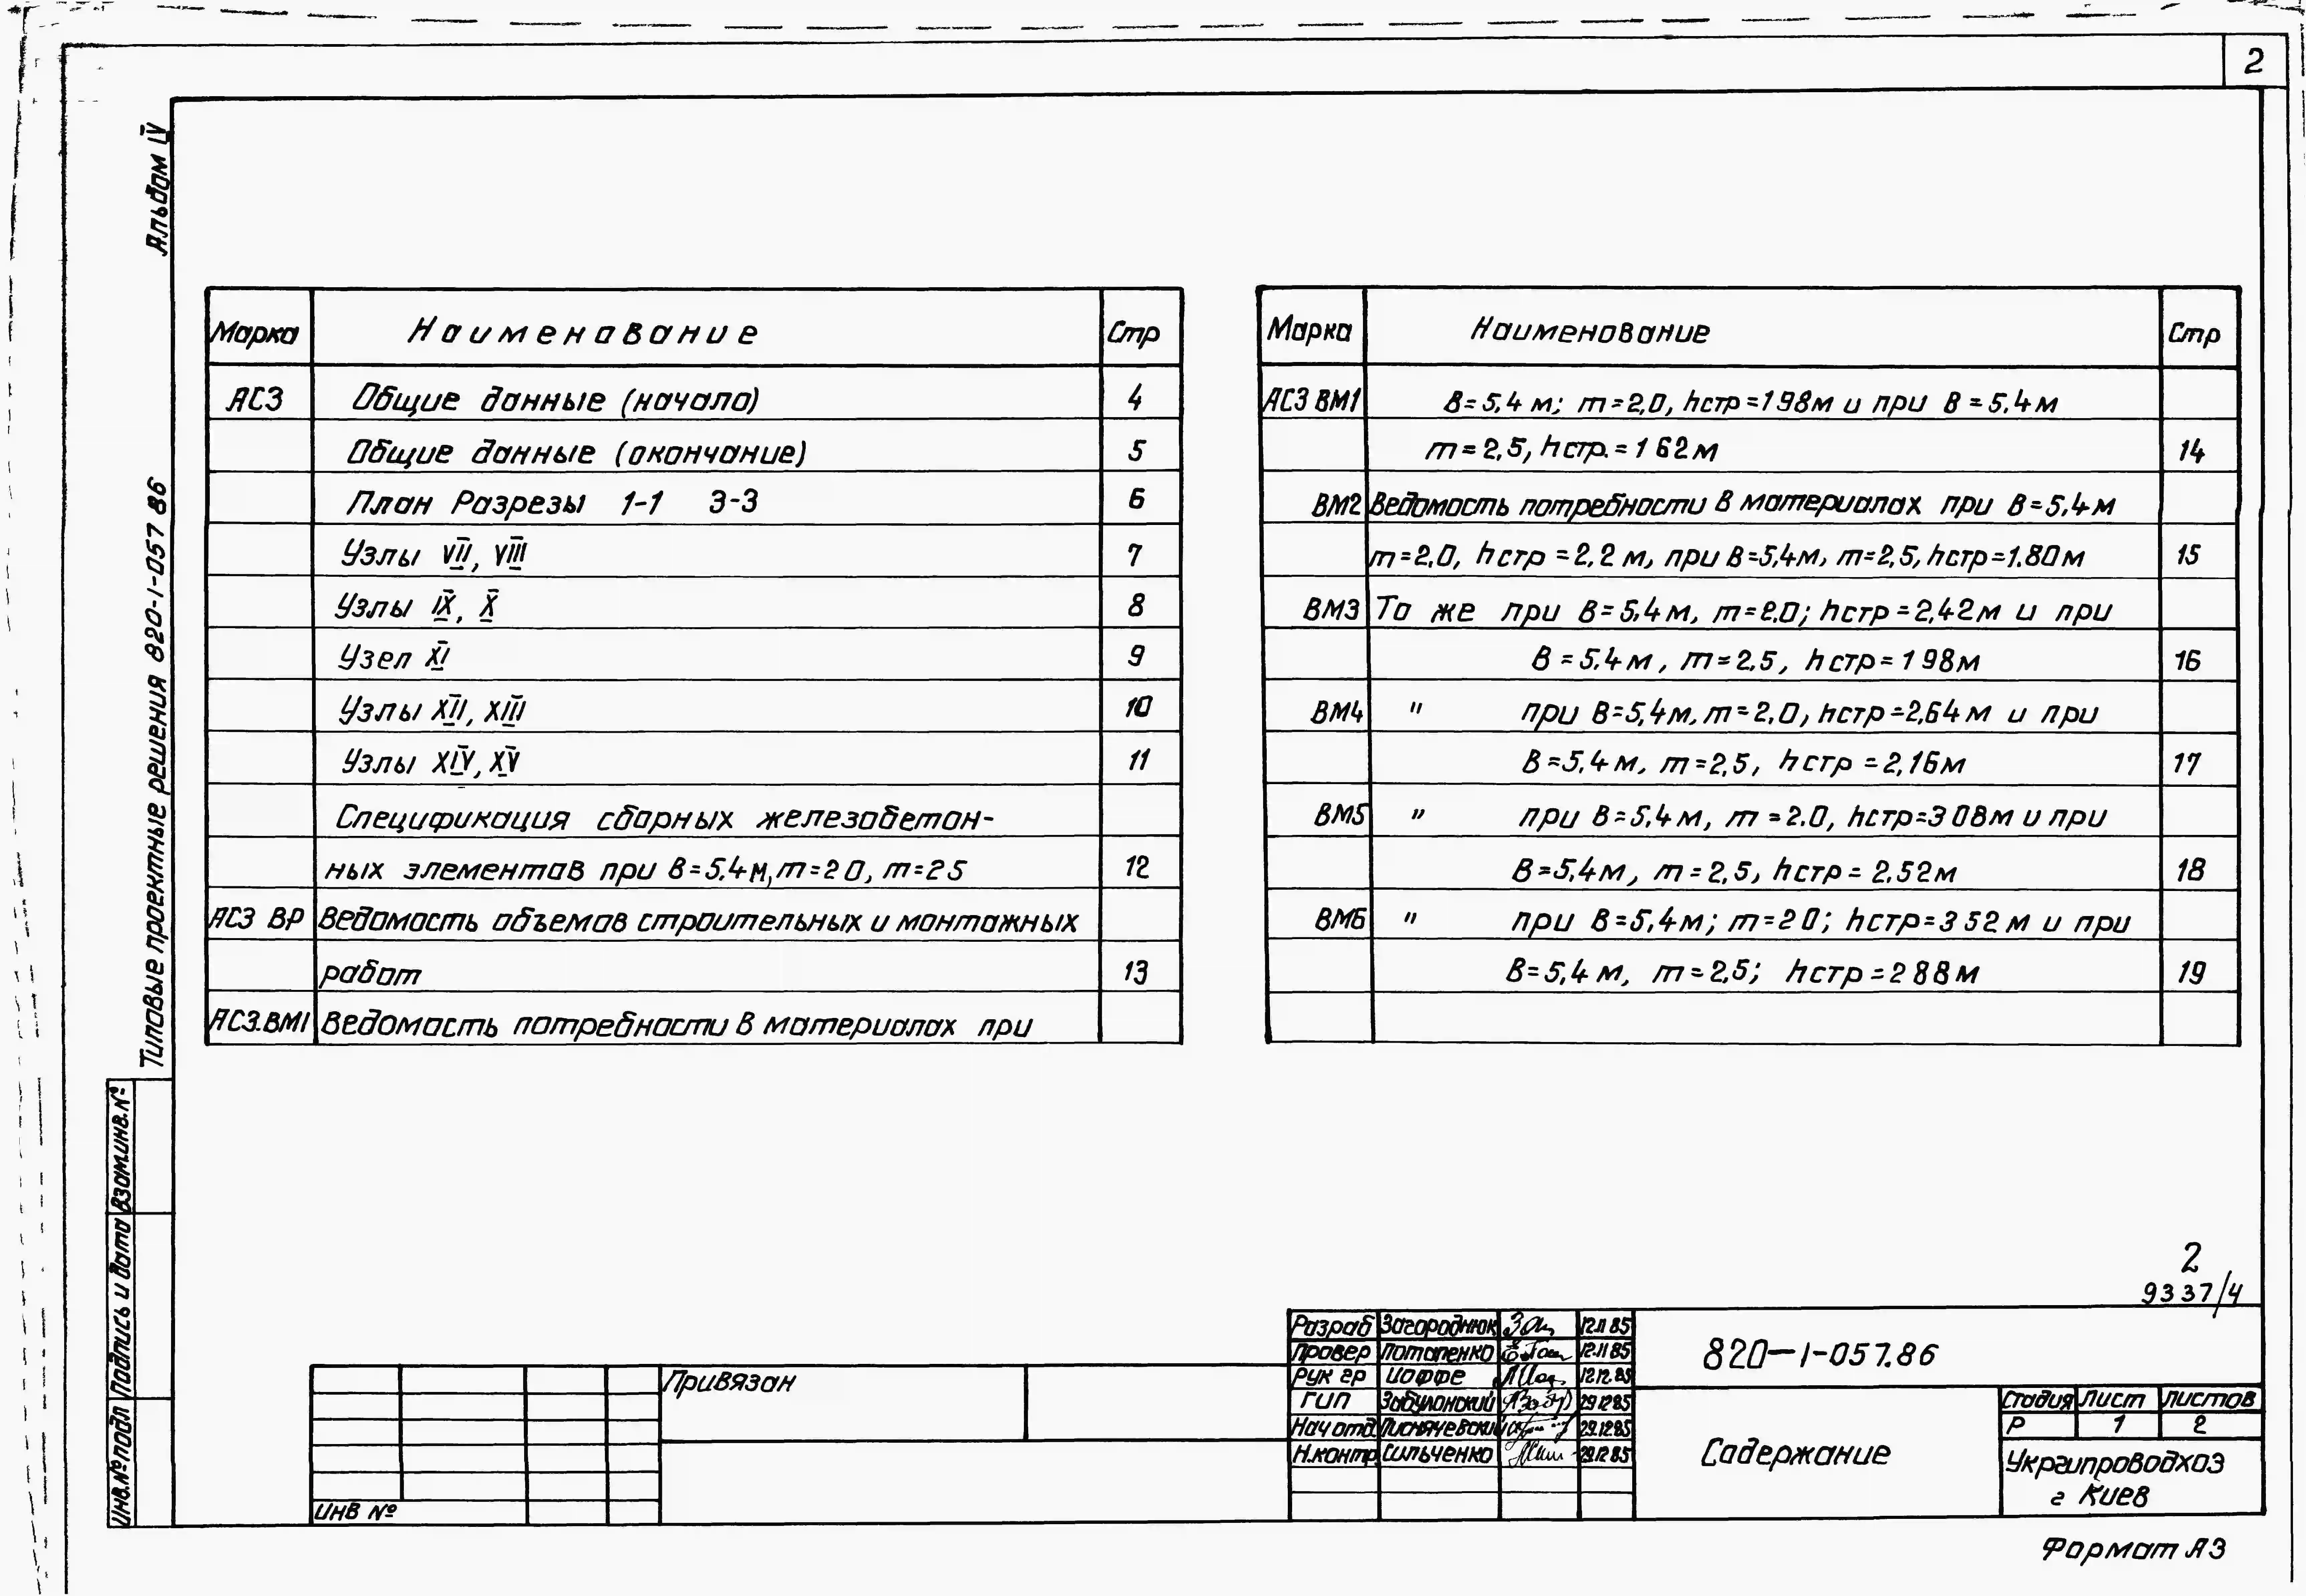 2
Альбом IV
Типовые проектные решения 820-1-057 86
Марка Наименование Стр
АС3 Общие данные (начало) 4
Общие данные (окончание) 5
План Разрезы 1-1 3-3 6
Узлы VII, VIII 7
Узлы IX, X 8
Узел XI 9
Узлы XII, XIII 10
Узлы XIV, XV 11
Спецификация сборных железобетон-
ных элементов при В=5.4м, m=2 0, m=2 5 12
АС3 ВР Ведомость объемов строительных и монтажных
работ 13
АС3.ВМ1 Ведомость потребности в материалах при
Марка Наименование Стр
АС3 ВМ1 В=5,4 м; m=2,0, hстр=1 98м и при В=5.4м
m=2,5, hстр.=1 62м 14
ВМ2 Ведомость потребности в материалах при В=5,4м
m=2,0, hстр=2,2 м, при В=5,4м, m=2,5, hстр=1.80м 15
ВМ3 То же при В=5,4м, m=2.0; hстр=2,42м и при
В=5.4м, m=2.5, hстр=1 98м 16
ВМ4 " при В=5,4м, m=2,0, hстр=2,64м и при
В=5,4м, m=2,5, hстр=2,16м 17
ВМ5 " при В=5.4м, m=2.0, hстр=3 08м и при
В=5,4м, m=2,5, hстр=2.52м 18
ВМ6 " при В=5,4м; m=2 0; hстр=3 52м и при
В=5,4 м, m=2,5; hстр=2 88м 19
Взам.инв.№
Подпись и дата
Инв.№ подл
2
9337/4
Привязан
Инв №
Разраб Загороднюк 12.11 85
Провер Потапенко 12.11 85
Рук гр Иоффе 12.12.85
ГИП Забулонский 29 12 85
Нач отд 29.12.85
Н.контр. Сильченко 29.12 85
820-1-057.86
Содержание
Стадия Лист Листов
Р 1 2
Укргипроводхоз
г Киев
Формат А3